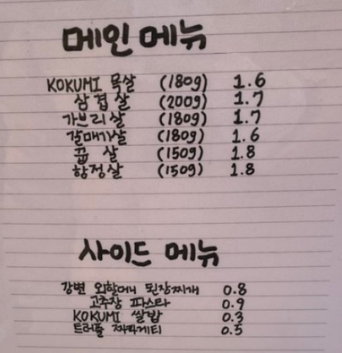 메인 메뉴
KOKUMI 목살 (180g) 1.6
삼겹살 (200g) 1.7
가브리살 (180g) 1.7
갈매기살 (180g) 1.6
꼽살 (150g) 1.8
항정살 (150g) 1.8
사이드 메뉴
강변 외할머니 된장찌개 0.8
고추장 파스타 0.9
KOKUMI 쌀밥 0.3
트러플 짜파게티 0.5